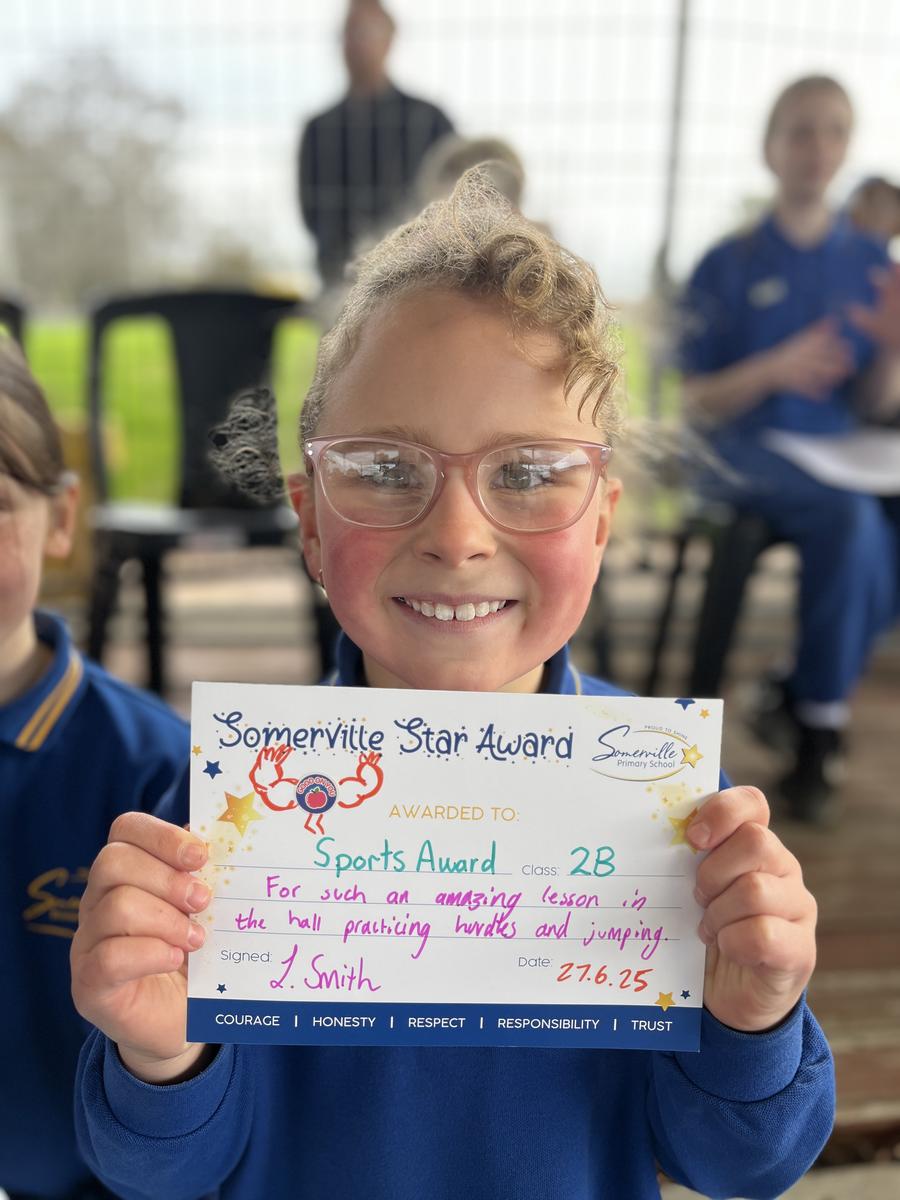 Somerville Star Award
PROUD TO SHINE
Somerville
Primary School
GOOD ON YOU
AWARDED TO:
Sports Award Class: 2B
For such an amazing lesson in
the hall practicing hurdles and jumping.
Signed: L. Smith Date: 27.6.25
COURAGE | HONESTY | RESPECT | RESPONSIBILITY | TRUST